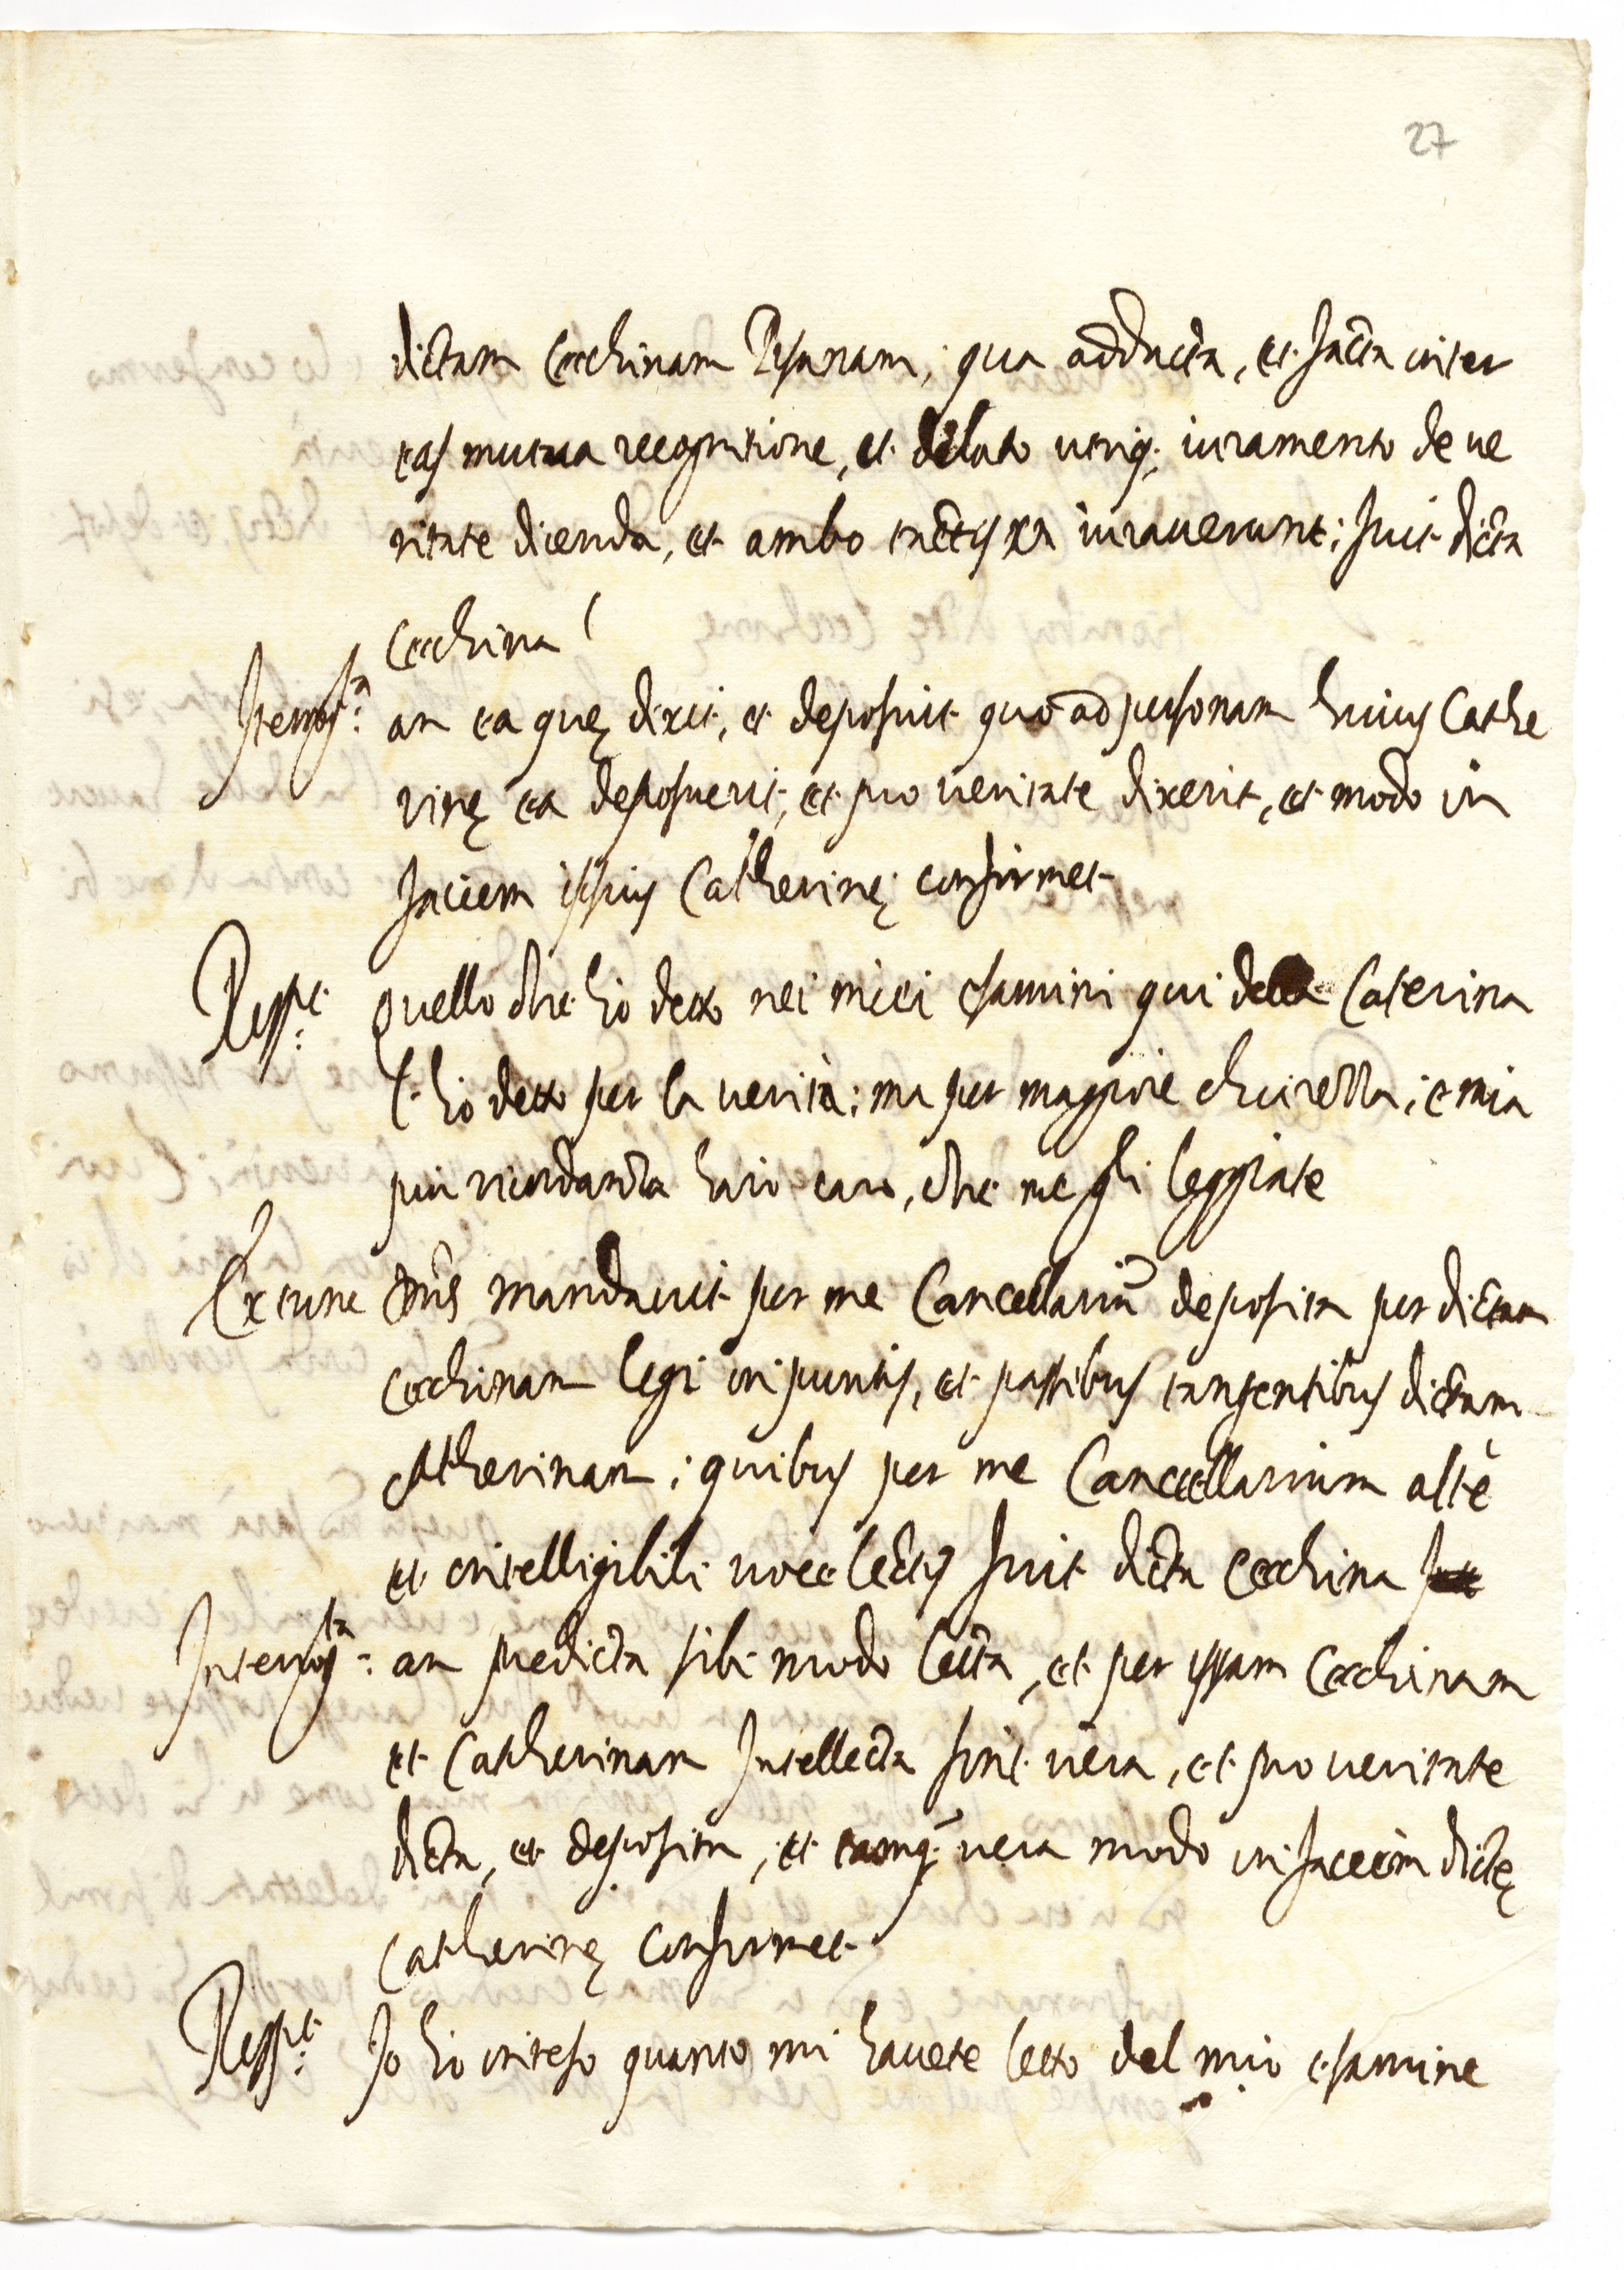 27
dictam Cecchinam Pesanam; qua adducta, et facta inter
eas mutua recognitione, et delato utriq; iuramento de ve
ritate dicenda, et ambo tactis xx iuraverunt; fuit dicta
Cecchina
Interrog.ta an ea quę dixit, et deposuit quo ad personam huius Cathe
rinę ea deposuerit, et pro veritate dixerit, et modo in
faciem ipsius Catherinę confirmet
Resp.t Quello che hò detto nei miei esamini qui della Caterina
l'hò detto per la verità; ma per maggiore chiarezza; e mia
più ricordanza harò caro, che me gli leggiate
Ex tunc Dn̄s mandavit per me Cancellariū deposita per dictam
Cecchinam legi in punctis, et passibus tangentibus dictam
Catherinam; quibus per me Cancellarium altè
et intelligibili voce lectis fuit dicta Cecchina
Interrog.ta an predicta sibi modo lecta, et per ipsam Cecchinam
et Catherinam Intellecta sint vera, et pro veritate
dicta, et deposita, et tamq; vera modo in faciem dictę
Catherinę confirmet
Resp.t Io hò inteso quanto mi havete letto del mio esamine